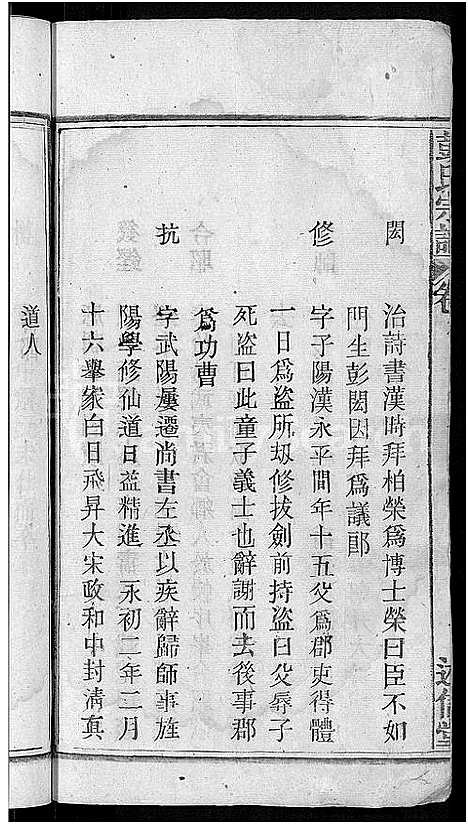 彭氏宗譜
卷
述信堂
閎
治詩書漢時拜柏榮爲博士榮曰臣不如
門生彭閎因拜爲議郎
修
字子陽漢永平間年十五父爲郡吏得體
一日爲盜所刼修拔劍前持盜曰父辱子
死盜曰此童子義士也辭謝而去後事郡
爲功曹
抗
字武陽屢遷尚書左丞以疾辭歸師事旌
陽學修仙道日益精進 永初二年二月
十六舉家白日飛昇大宋政和中封淸眞
道人